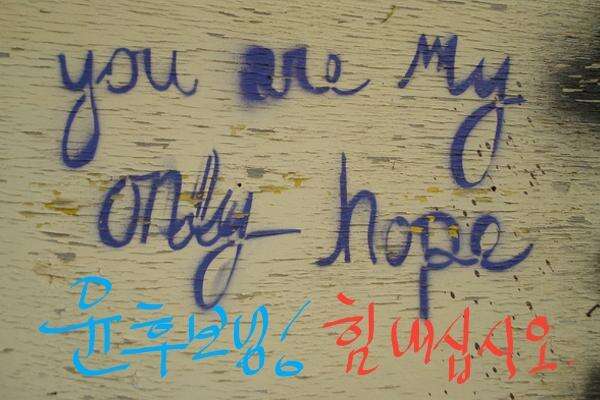 you are my
only hope
윤후보님! 힘내십시오.